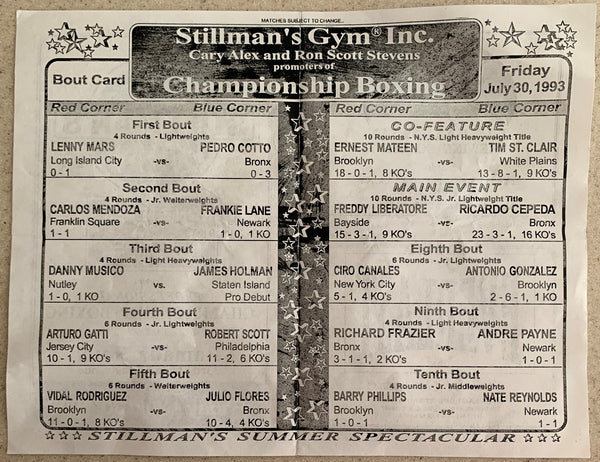 MATCHES SUBJECT TO CHANGE..
Stillman's Gym® Inc.
Cary Alex and Ron Scott Stevens
promoters of
Championship Boxing
Bout Card
Friday
July 30, 1993
Red Corner Blue Corner
First Bout
4 Rounds - Lightweights
LENNY MARS PEDRO COTTO
Long Island City -vs- Bronx
0 - 1 0 - 3
Second Bout
4 Rounds - Jr. Welterweights
CARLOS MENDOZA FRANKIE LANE
Franklin Square -vs- Newark
1 - 1 1 - 0, 1 KO
Third Bout
4 Rounds - Light Heavyweights
DANNY MUSICO JAMES HOLMAN
Nutley vs. Staten Island
1 - 0, 1 KO Pro Debut
Fourth Bout
6 Rounds - Jr. Lightweights
ARTURO GATTI ROBERT SCOTT
Jersey City -vs- Philadelphia
10 - 1, 9 KO's 11 - 2, 6 KO's
Fifth Bout
6 Rounds - Welterweights
VIDAL RODRIGUEZ JULIO FLORES
Brooklyn -vs- Bronx
11 - 0 - 1, 8 KO's 10 - 4, 8 KO's
Red Corner Blue Corner
CO-FEATURE
10 Rounds - N.Y.S. Light Heavyweight Title
ERNEST MATEEN TIM ST. CLAIR
Brooklyn -vs- White Plains
18 - 0 - 1, 8 KO's 13 - 8 - 1, 9 KO's
MAIN EVENT
10 Rounds - N.Y.S. Jr. Lightweight Title
FREDDY LIBERATORE RICARDO CEPEDA
Bayside -vs- Bronx
15 - 3 - 1, 9 KO's 23 - 3 - 1, 16 KO's
Eighth Bout
6 Rounds - Jr. Lightweights
CIRO CANALES ANTONIO GONZALEZ
New York City -vs- Brooklyn
5 - 1, 4 KO's 2 - 6 - 1, 1 KO
Ninth Bout
4 Rounds - Light Heavyweights
RICHARD FRAZIER ANDRE PAYNE
Bronx -vs- Newark
3 - 1 - 1, 2 KO's 1 - 0 - 1
Tenth Bout
4 Rounds - Jr. Middleweights
BARRY PHILLIPS NATE REYNOLDS
Brooklyn -vs- Newark
1 - 0 - 1 1 - 1
STILLMAN'S SUMMER SPECTACULAR